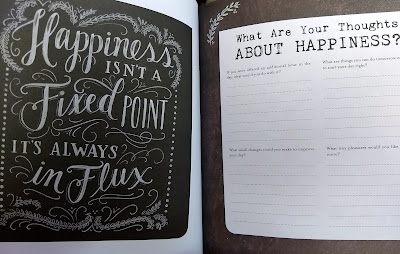 Happiness
ISN'T A
Fixed POINT
IT'S ALWAYS
in Flux
What Are Your Thoughts
ABOUT HAPPINESS?
If you were offered an additional hour in the
day, what would you do with it?
What are things you can do tomorrow
to start your day right?
What small changes could you make to improve
your day?
What tiny pleasures would you like